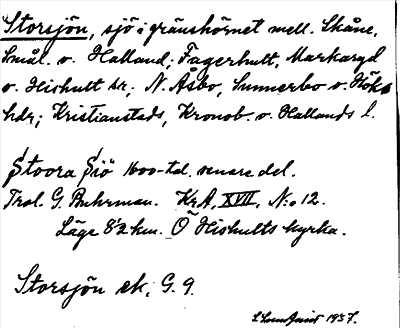 Storsjön, sjö i gränshörnet mell. Skåne,
Smål. o. Halland; Fagerhult, Markaryd
o. Hishult sr; N. Åsbo, Sunnerbo o. Höks
hdr; Kristianstads, Kronob. o. Hallands l.
Stoora Siö 1600-tal. senare del.
Trol. G. Buhrman. KrA, XVII, N:o 12.
Läge 8½ km. Ö Hishults kyrka.
Storsjön ek, G. 9.
1937.